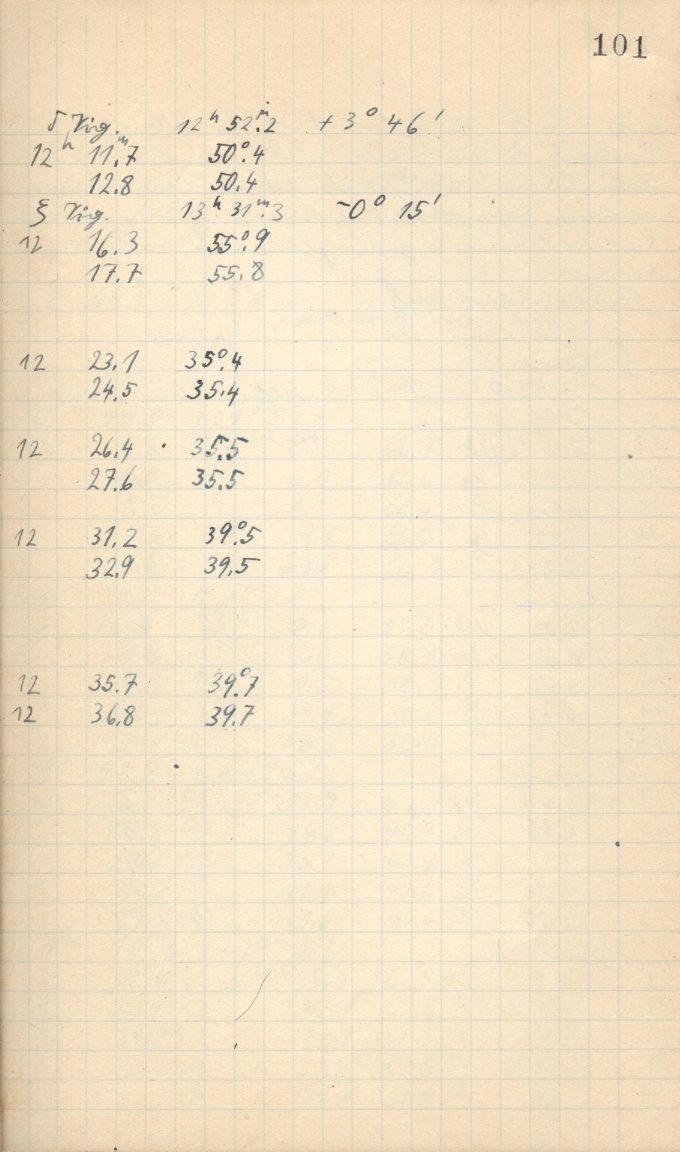 101
δ Virg. 12ʰ 52ᵐ.2 + 3° 46'
12ʰ 11ᵐ.7 50°.4
12.8 50.4
ξ Virg. 13ʰ 31ᵐ.3 -0° 15'
12 16.3 55°.9
17.7 55.8
12 23.1 35°.4
24.5 35.4
12 26.4 35.5
27.6 35.5
12 31.2 39°.5
32.9 39.5
12 35.7 39°.7
12 36.8 39.7